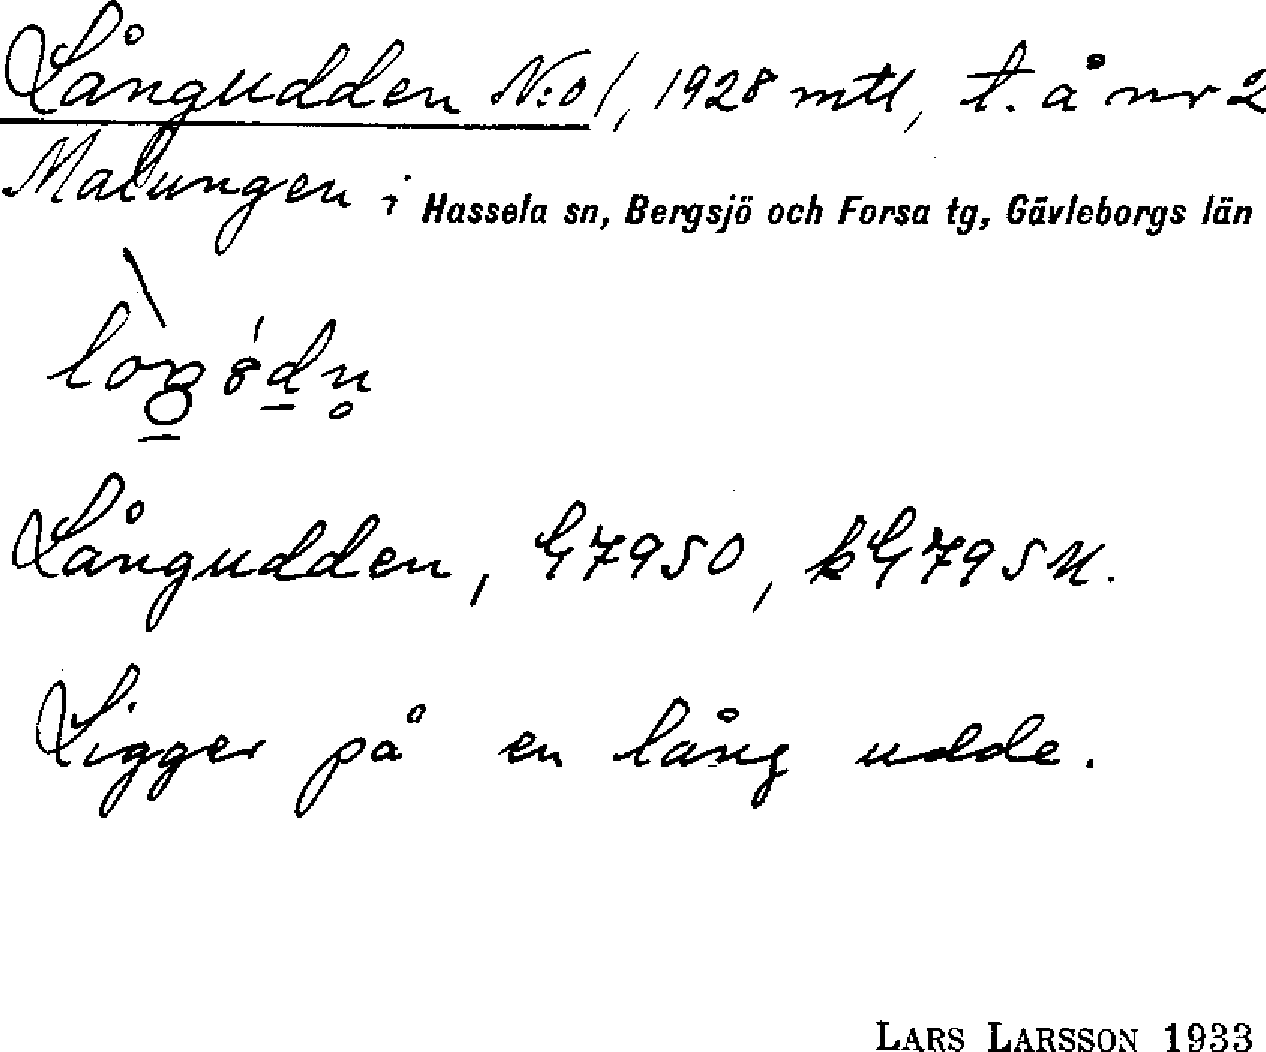 Långudden N:o 1, 1928 mtl, t. å nr 2
Malungen i Hassela sn, Bergsjö och Forsa tg, Gävleborgs län
Långudden, G7950, kG795
Ligger på en lång udde.
LARS LARSSON 1933